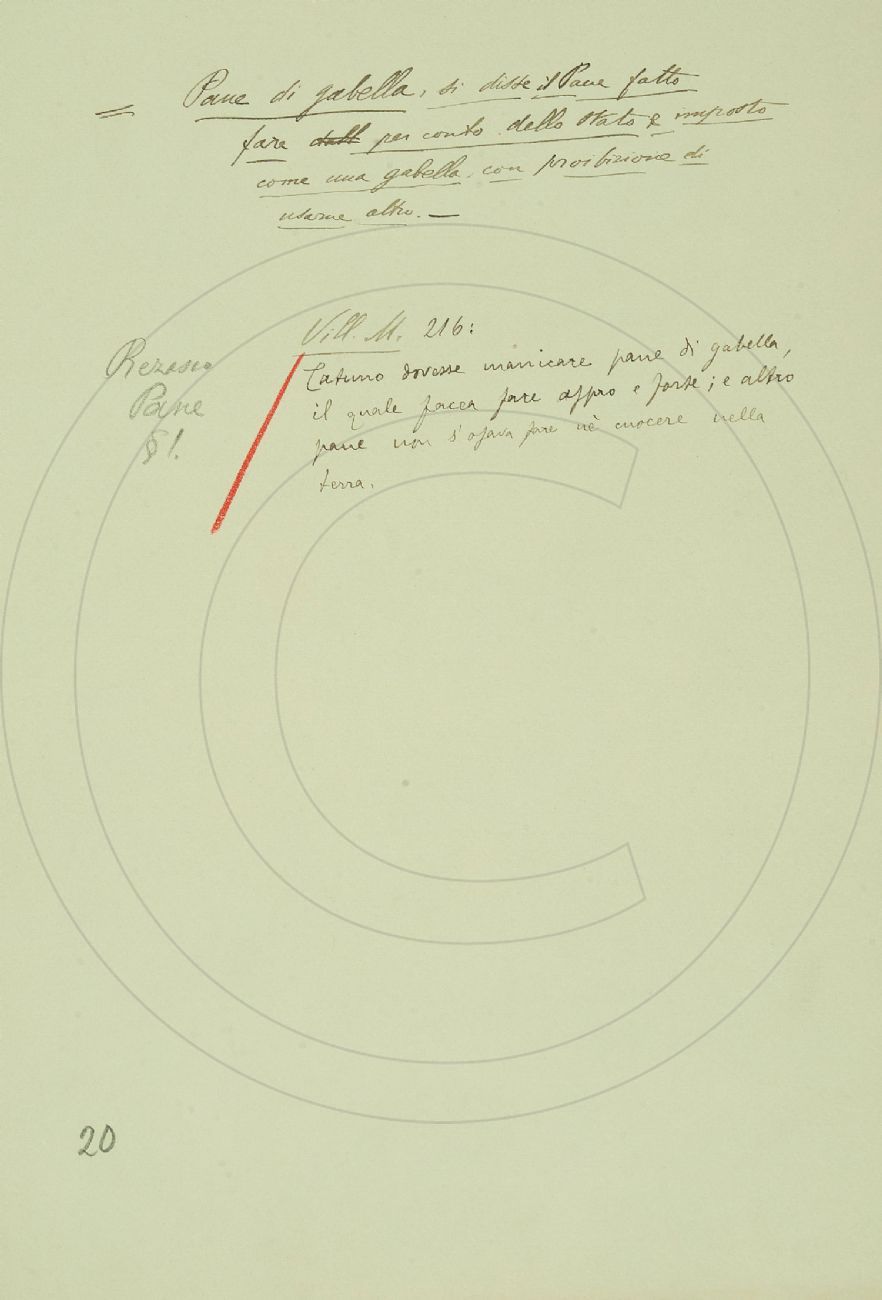 = Pane di gabella, si disse il Pane fatto
fare dall per conto dello Stato e imposto
come una gabella, con proibizione di
usarne altro. —
Vill. M. 216:
Rezasco
Pane
§ 1.
Catuno dovesse manicare pane di gabella,
il quale facea fare aspro e forte; e altro
pane non s'osava fare nè cuocere nella
terra.
20